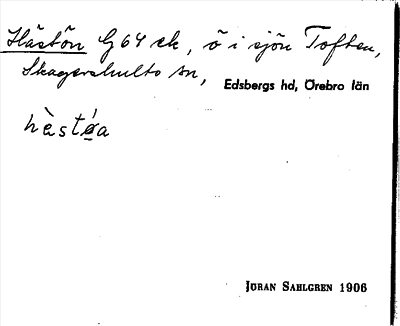 Hästön G64 ek, ö i sjön Toften,
Skagershults sn, Edsbergs hd, Örebro län
hὲstǿa
JÖRAN SAHLGREN 1906